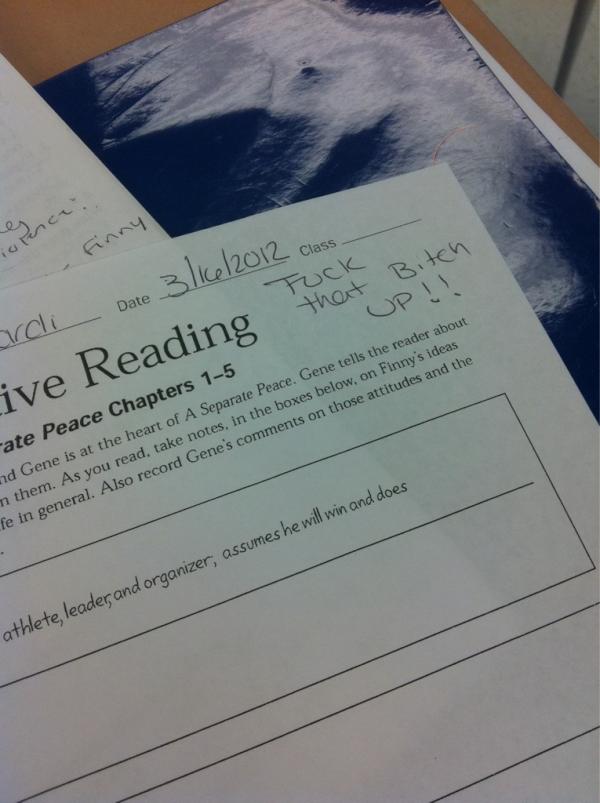 Finny
ardi Date 3/16/2012 Class
Fuck
that Bitch
UP!!
ive Reading
rate Peace Chapters 1–5
nd Gene is at the heart of A Separate Peace. Gene tells the reader about
n them. As you read, take notes, in the boxes below, on Finny's ideas
fe in general. Also record Gene's comments on those attitudes and the
.
athlete, leader, and organizer; assumes he will win and does